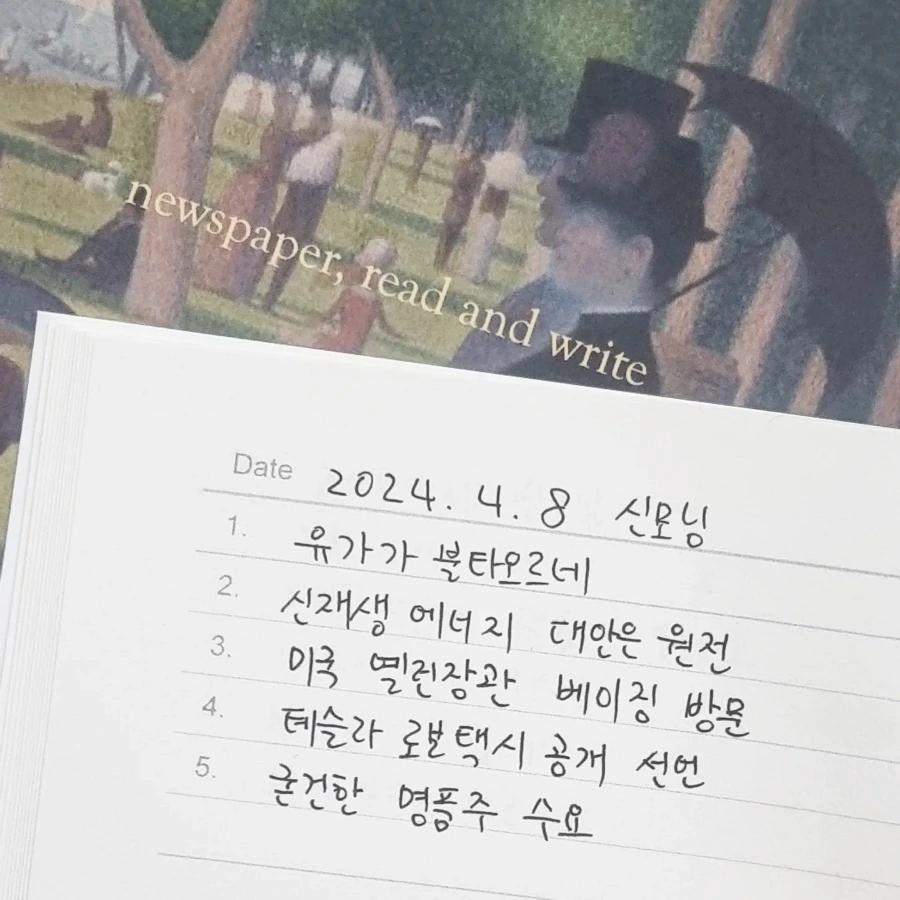 newspaper, read and write
Date 2024. 4. 8 신모닝
1. 유가가 불타오르네
2. 신재생 에너지 대안은 원전
3. 미국 옐린장관 베이징 방문
4. 테슬라 로보택시 공개 선언
5. 굳건한 명품주 수요